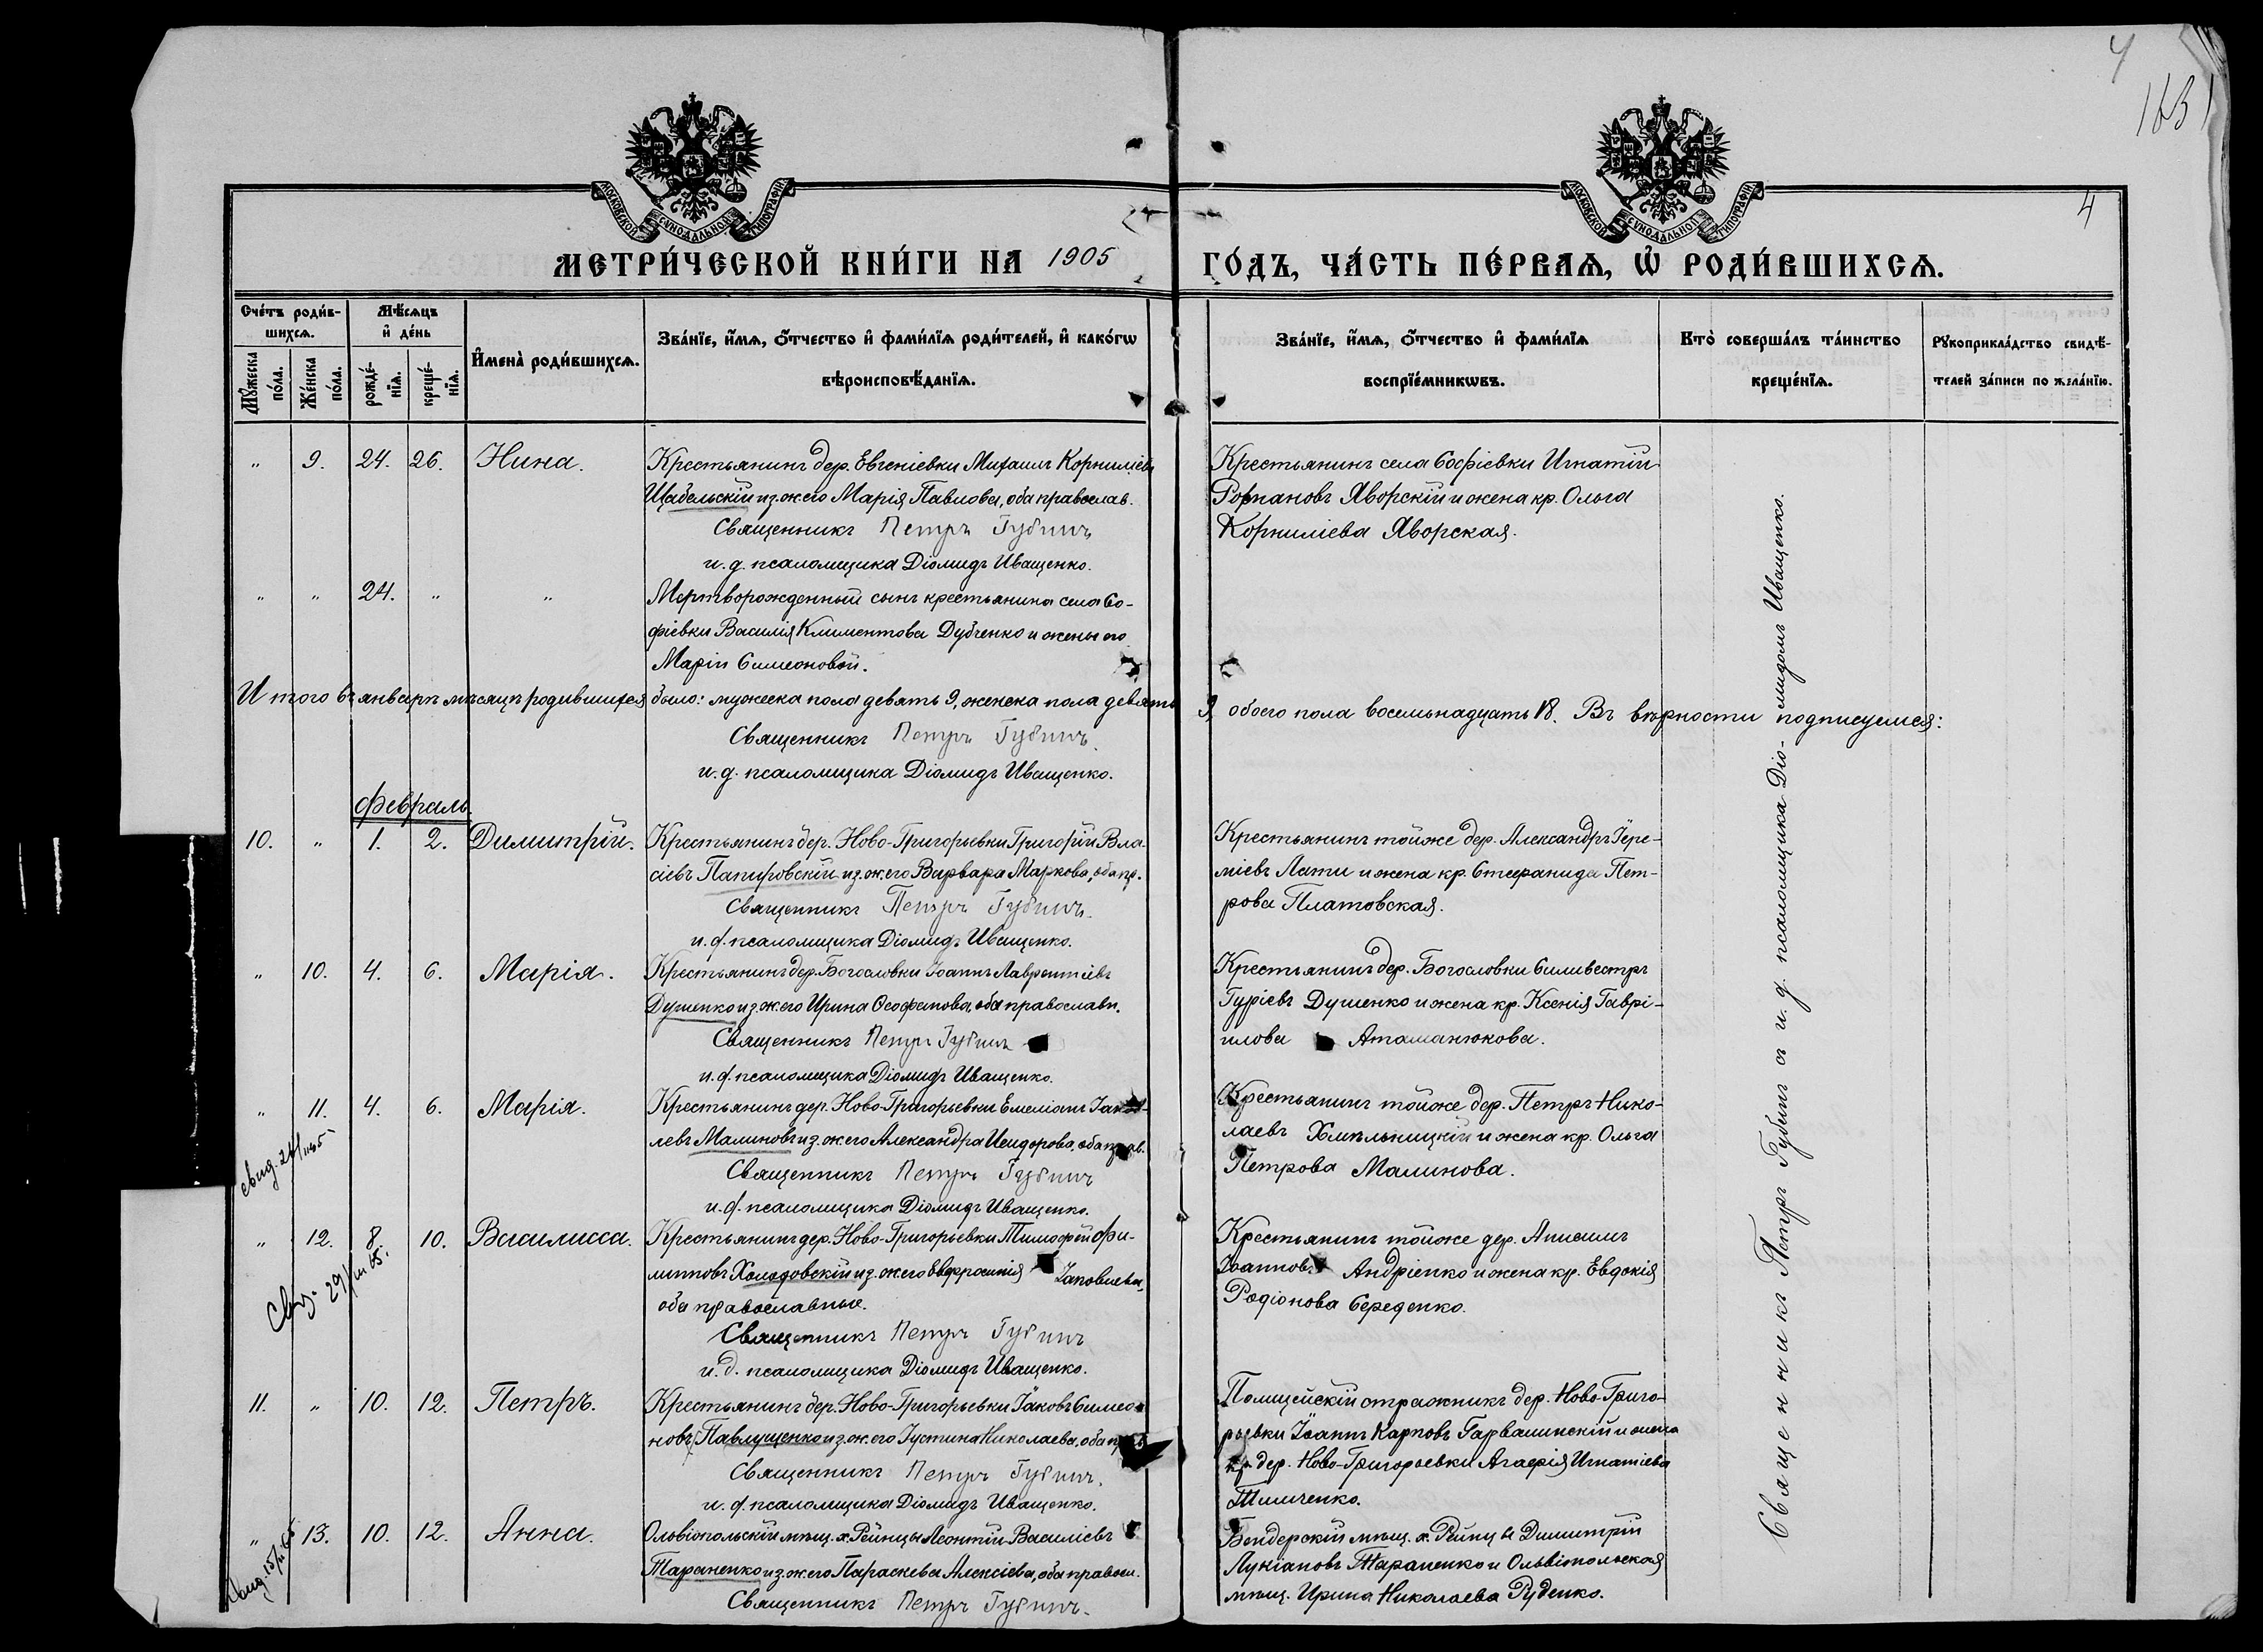 4
163
МОСКОВСКОЙ СѴНОДАЛЬНОЙ ТИПОГРАФІИ
МОСКОВСКОЙ СѴНОДАЛЬНОЙ ТИПОГРАФІИ
4
МЕТРИ́ЧЕСКОЙ КНИ́ГИ НА 1905 ГО́ДЪ, ЧА́СТЬ ПЕ́РВАѦ, Ѡ҆ РОДИ́ВШИХСѦ.
Сче́тъ роди́в-
шихсѧ.
Мѣ́сѧцъ
и҆ де́нь
Мꙋ́жеска
по́ла.
Же́нска
по́ла.
рожде́-
нїѧ.
креще́-
нїѧ.
И҆мена̀ роди́вшихсѧ.
Зва́нїе, и҆́мѧ, ѻ҆́тчество и҆ фами́лїѧ роди́телей, и҆ како́гѡ
вѣроисповѣ́данїѧ.
Зва́нїе, и҆́мѧ, ѻ҆́тчество и҆ фами́лїѧ
воспрїе́мникѡвъ.
Кто̀ соверша́лъ та́инство
креще́нїѧ.
Рꙋкоприкла́дство свидѣ́-
телей за́писи по жела́нїю.
" 9. 24. 26. Нина.
Крестьянинъ дер. Евгеніевки Михаилъ Корниліевъ
Щабельскій из.ж.его Марія Павлова, оба православ.
Священникъ Петръ Губинъ
и.д. псаломщика Діомидъ Иващенко.
Крестьянинъ села Софіевки Игнатій
Романовъ Яворскій и жена кр. Ольга
Корниліева Яворская.
" " 24. " "
Мертворожденный сынъ крестьянина села Со-
фіевки Василія Климентова Дубченко и жены его
Маріи Симеоновой.
Итого въ январѣ мѣсяцѣ родившихся было: мужеска пола девять 9, женска пола девять 9, обоего пола восемьнадцать 18. Въ вѣрности подписуемся:
Священникъ Петръ Губинъ.
и.д. псаломщика Діомидъ Иващенко.
Февраль.
10. " 1. 2. Димитрій.
Крестьянинъ дер. Ново-Григорьевки Григорій Вла-
сіевъ Папировскій из.ж.его Варвара Маркова, оба пр.
Священникъ Петръ Губинъ.
и.д. псаломщика Діомидъ Иващенко.
Крестьянинъ тойже дер. Александръ Іере-
міевъ Лати и жена кр. Стефанида Пет-
рова Платовская.
" 10. 4. 6. Марія.
Крестьянинъ дер. Богословки Іоаннъ Лаврентіевъ
Душенко из.ж.его Ирина Ѳеофанова, оба православн.
Священникъ Петръ Губинъ
и.д. псаломщика Діомидъ Иващенко.
Крестьянинъ дер. Богословки Силивестръ
Гуріевъ Душенко и жена кр. Ксенія Гаврі-
илова Атаманюкова.
" 11. 4. 6. Марія.
Крестьянинъ дер. Ново-Григорьевки Емеліанъ Іаков-
левъ Малиновъ из.ж.его Александра Исидорова, оба прав.
Священникъ Петръ Губинъ
и.д. псаломщика Діомидъ Иващенко.
Крестьянинъ тойже дер. Петръ Нико-
лаевъ Хмѣльницкій и жена кр. Ольга
Петрова Малинова.
" 12. 8. 10. Василисса.
Крестьянинъ дер. Ново-Григорьевки Тимофей Фи-
липповъ Холодовскій из.ж.его Евфросинія Іаковлева,
оба православные.
Священникъ Петръ Губинъ
и.д. псаломщика Діомидъ Иващенко.
Крестьянинъ тойже дер. Анисимъ
Іоанновъ Андріенко и жена кр. Евдокія
Родіонова Середенко.
11. " 10. 12. Петръ.
Крестьянинъ дер. Ново-Григорьевки Іаковъ Симео-
новъ Павлущенко из.ж.его Іустина Николаева, оба прав
Священникъ Петръ Губинъ.
и.д. псаломщика Діомидъ Иващенко.
Полицейскій стражникъ дер. Ново-Григо-
рьевки Іоаннъ Карповъ Гарвалинскій и жена
кр. дер. Ново-Григорьевки Агафія Игнатіева
Тимченко.
" 13. 10. 12. Анна.
Ольвіопольскій мѣщ. х. Рейнцы Леонтій Василіевъ
Тараненко из.ж.его Параскева Алексіева, оба правосл.
Священникъ Петръ Губинъ.
Бендерскій мѣщ. х. Рейнцы Димитрій
Лукіановъ Тараненко и Ольвіопольская
мѣщ. Ирина Николаева Руденко.
Священникъ Петръ Губинъ съ и.д. псаломщика Діо-
мидомъ Иващенко.